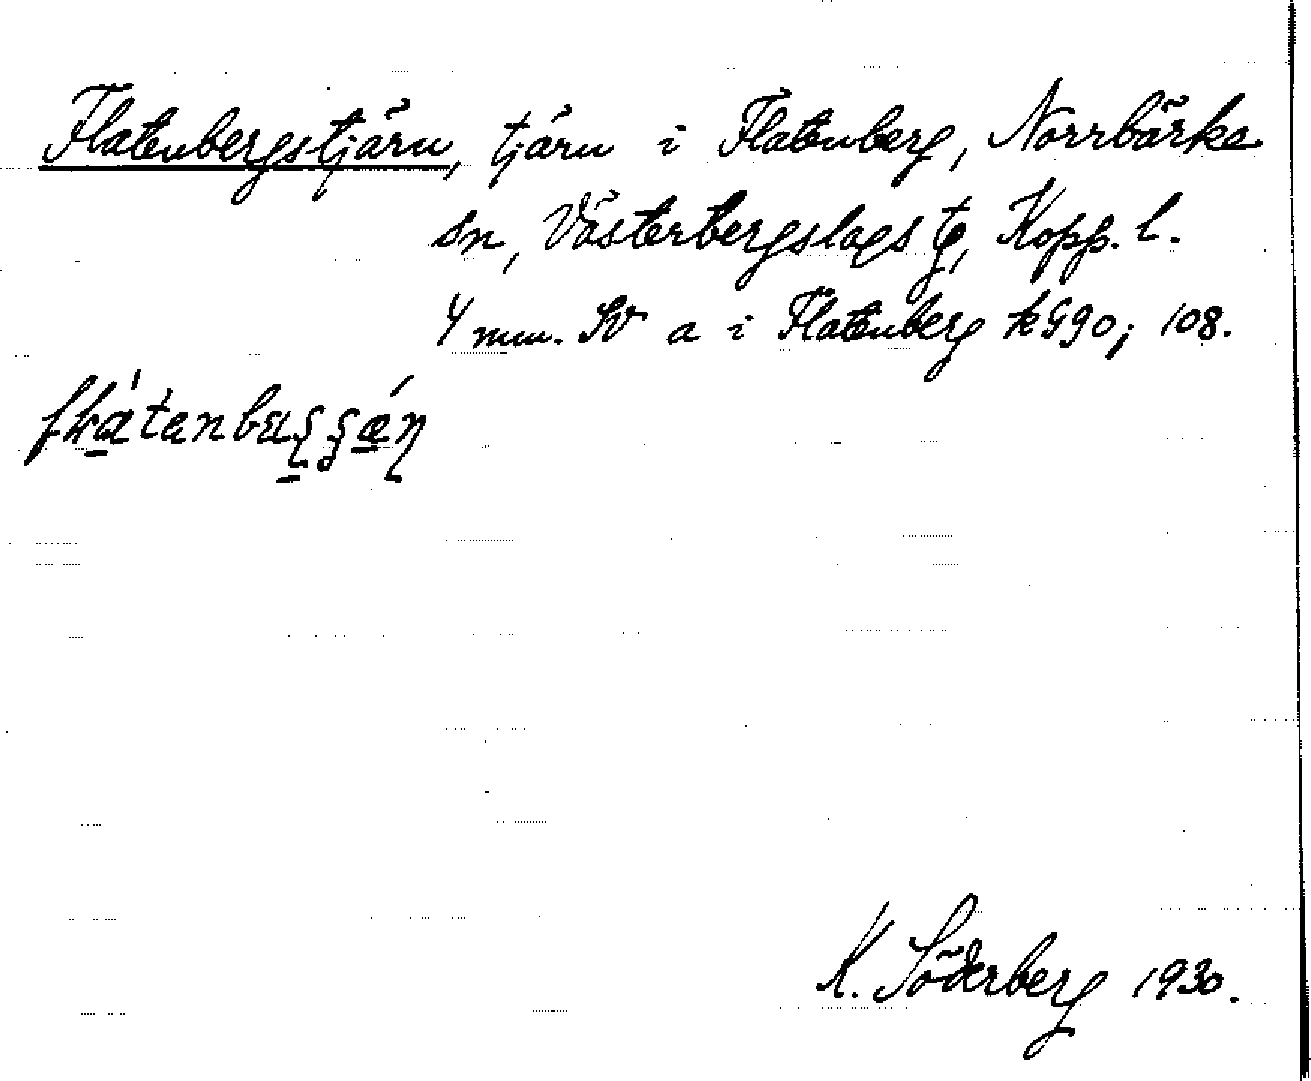 Flatenbergstjärn, tjärn i Flatenberg, Norrbärke
sn, Västerbergslags tg, Kopp. l.
4 mm. SV a i Flatenberg k G90; 108.
K. Söderberg 1930.